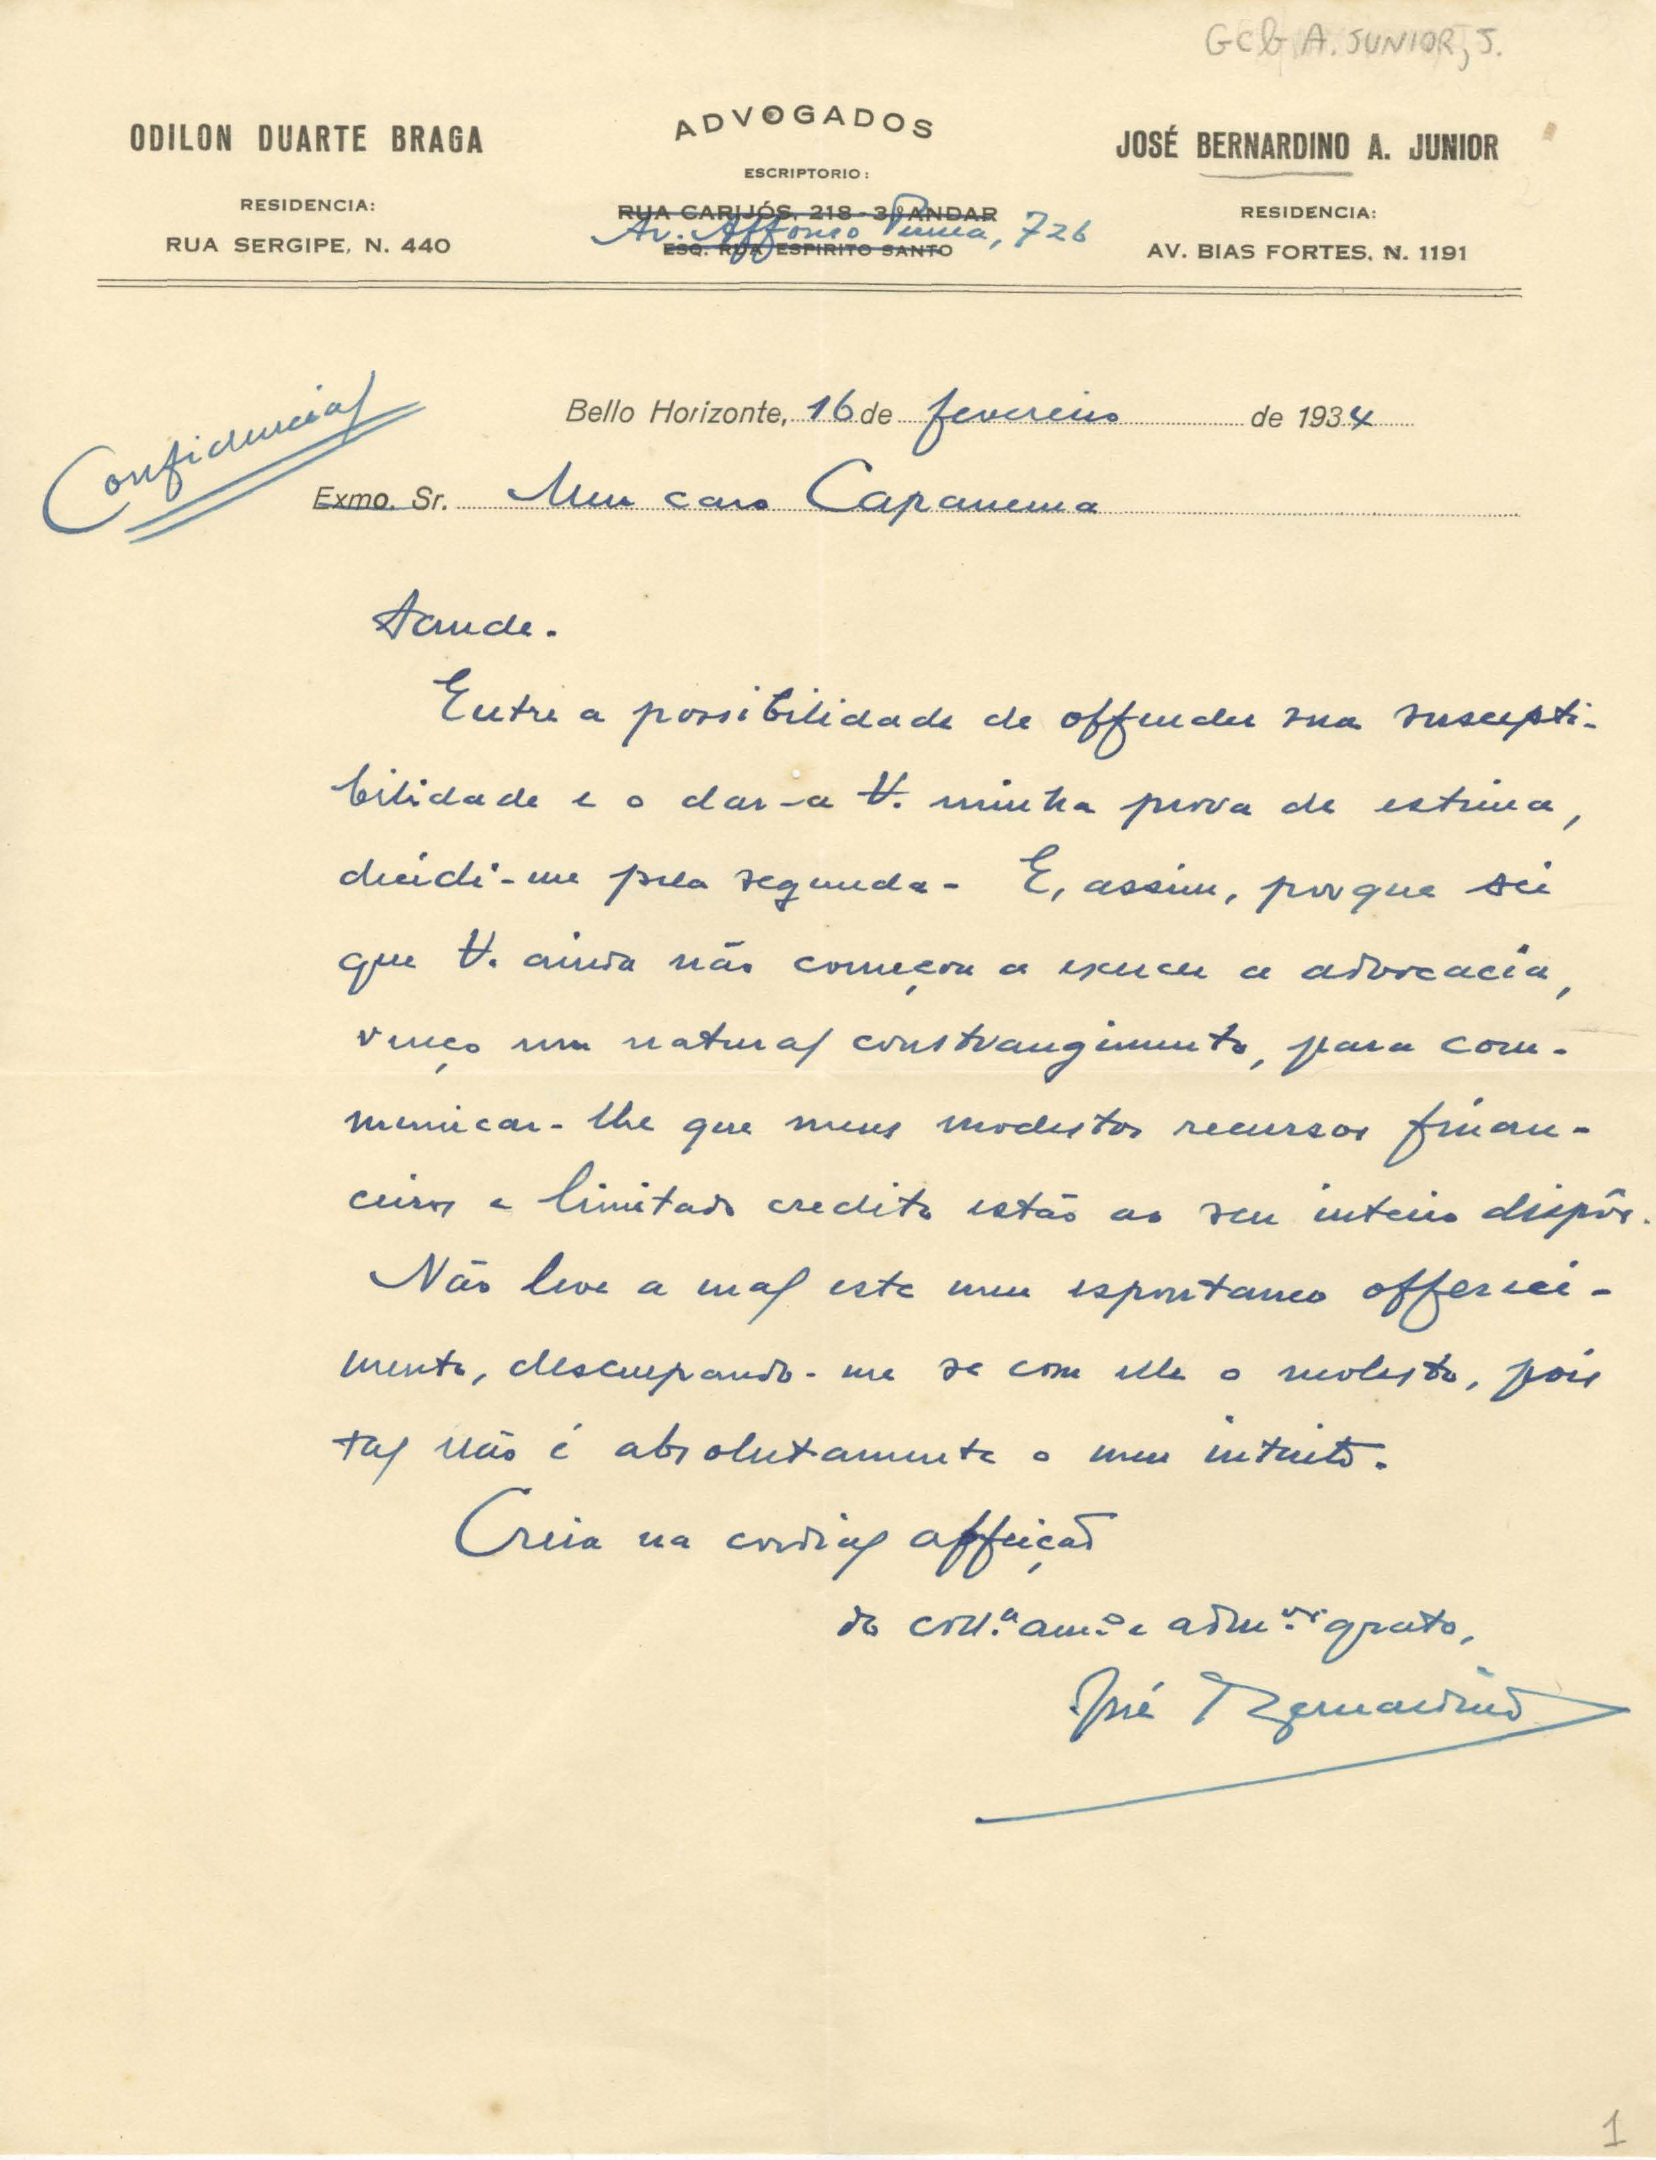 GC b A. JUNIOR, J.
ODILON DUARTE BRAGA
RESIDENCIA:
RUA SERGIPE, N. 440
ADVOGADOS
ESCRIPTORIO:
RUA CARIJÓS, 218 - 3º ANDAR
Av. Affonso Penna, 726
ESQ. RUA ESPIRITO SANTO
JOSÉ BERNARDINO A. JUNIOR
RESIDENCIA:
AV. BIAS FORTES, N. 1191
Confidencial
Bello Horizonte, 16 de fevereiro de 1934
Exmo. Sr. Meu caro Capanema
Saude.
Entre a possibilidade de offender sua suscepti-
bilidade e o dar-a V. minha prova de estima,
decidi-me pela segunda. E, assim, porque sei
que V. ainda não começou a exercer a advocacia,
venço um natural constrangimento, para com-
municar-lhe que meus modestos recursos finan-
ceiros e limitado credito estão ao seu inteiro dispôr.
Não leve a mal este meu espontaneo offereci-
mento, desculpando-me se com elle o molesto, pois
tal não é absolutamente o meu intuito.
Creia na cordial affeição
do coll.ª am.º e adm.or grato,
José Bernardino
1